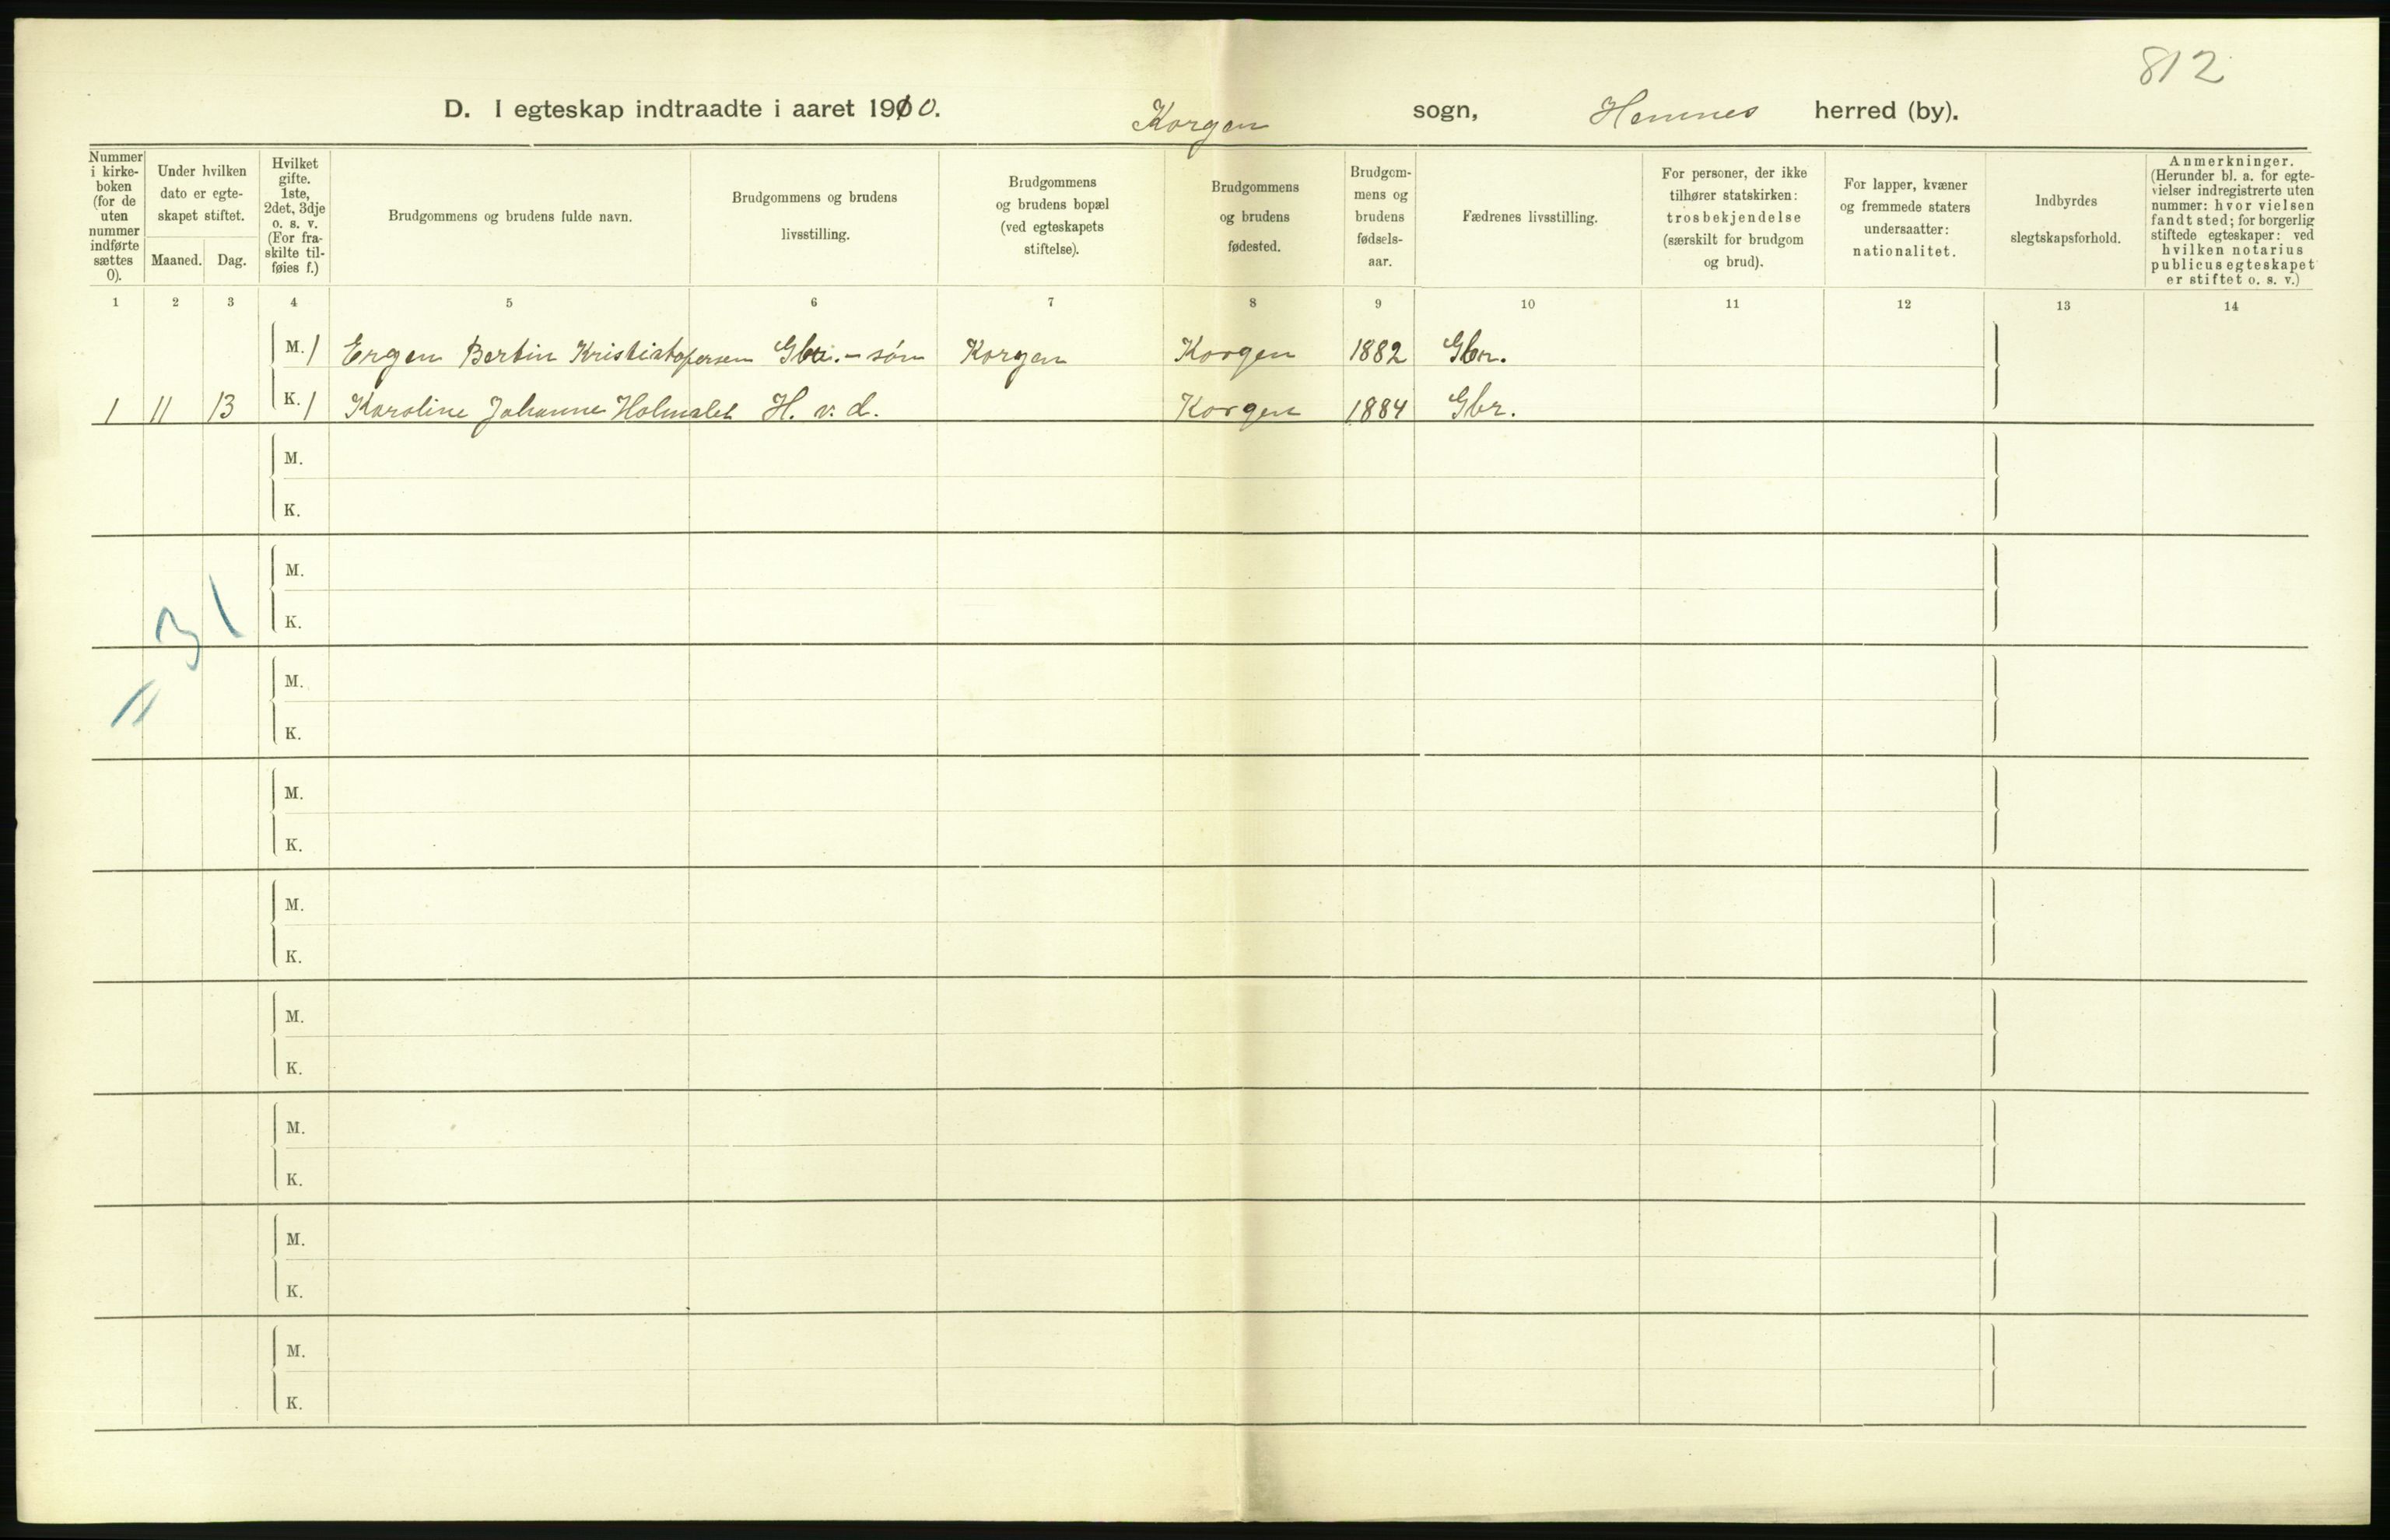 812
D. I egteskap indtraadte i aaret 1910. Korgen sogn, Hemnes herred (by).
Nummer i kirke-boken (for de uten nummer indførte sættes 0).
Under hvilken dato er egte-skapet stiftet.
Maaned. Dag.
Hvilket gifte. 1ste, 2det, 3dje o. s. v. (For fra-skilte til-føies f.)
Brudgommens og brudens fulde navn.
Brudgommens og brudens livsstilling.
Brudgommens og brudens bopæl (ved egteskapets stiftelse).
Brudgommens og brudens fødested.
Brudgom-mens og brudens fødsels-aar.
Fædrenes livsstilling.
For personer, der ikke tilhører statskirken: trosbekjendelse (særskilt for brudgom og brud).
For lapper, kvæner og fremmede staters undersaatter: nationalitet.
Indbyrdes slegtskapsforhold.
Anmerkninger. (Herunder bl. a. for egte-vielser indregistrerte uten nummer: hvor vielsen fandt sted; for borgerlig stiftede egteskaper: ved hvilken notarius publicus egteskapet er stiftet o. s. v.)
1 2 3 4 5 6 7 8 9 10 11 12 13 14
M. 1 Ergen Bertin Kristiatofersen Gbr.-søn Korgen Korgen 1882 Gbr.
1 11 13 K. 1 Karoline Johanne Holmslet H. v. d. Korgen 1884 Gbr.
M.
K.
M.
31
K.
M.
11
K.
M.
K.
M.
K.
M.
K.
M.
K.
M.
K.
M.
K.